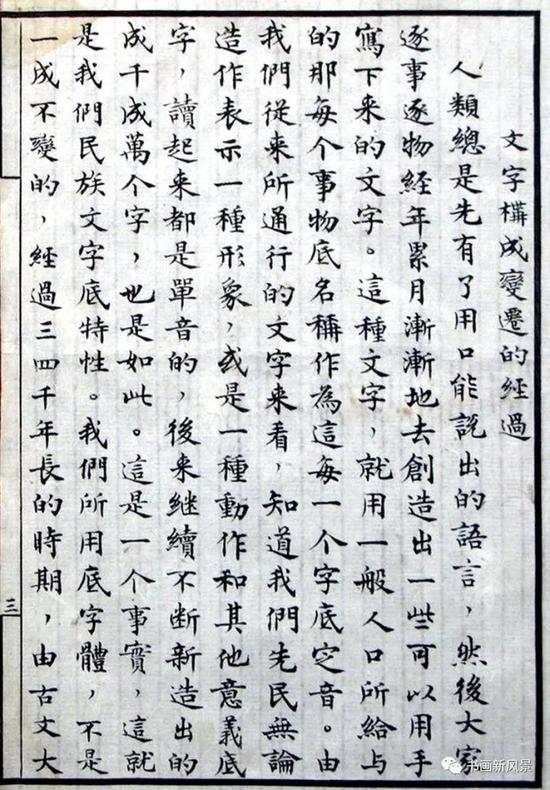 文字構成變遷的經過
人類總是先有了用口能説出的語言，然後大家
逐事逐物經年累月漸漸地去創造出一些可以用手
寫下来的文字。這種文字，就用一般人口所給与
的那每个事物底名稱作為這每一个字底定音。由
我們從来所通行的文字来看，知道我們先民無論
造作表示一種形象，或是一種動作和其他意義底
字，讀起来都是單音的，後来継續不断新造出的
成千成萬个字，也是如此。這是一个事實，這就
是我們民族文字底特性。我們所用底字體，不是
一成不變的，經過三四千年長的時期，由古文大
三
书画新风景